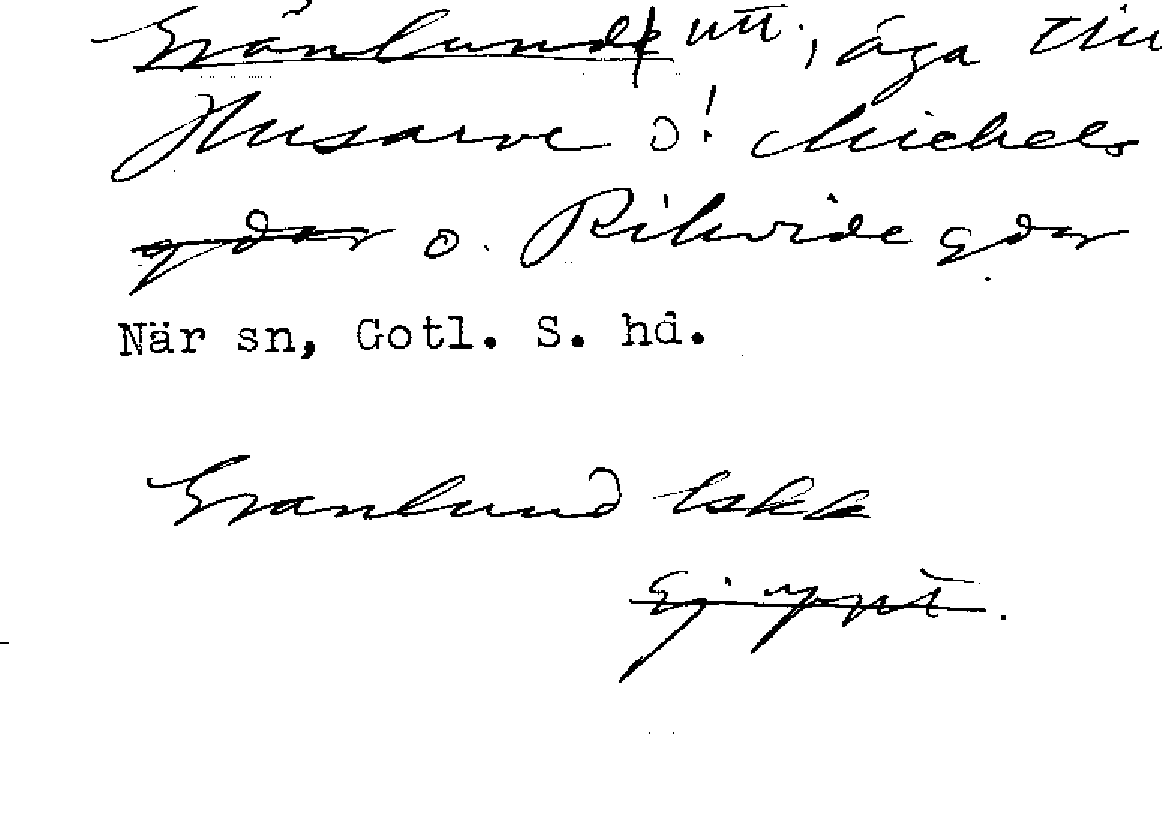 Grånlund utt., äga till
Husarve o! Michels
gdar o. Rikvide gdar
När sn, Gotl. S. hd.
Granlund lskk
Ej uppt.